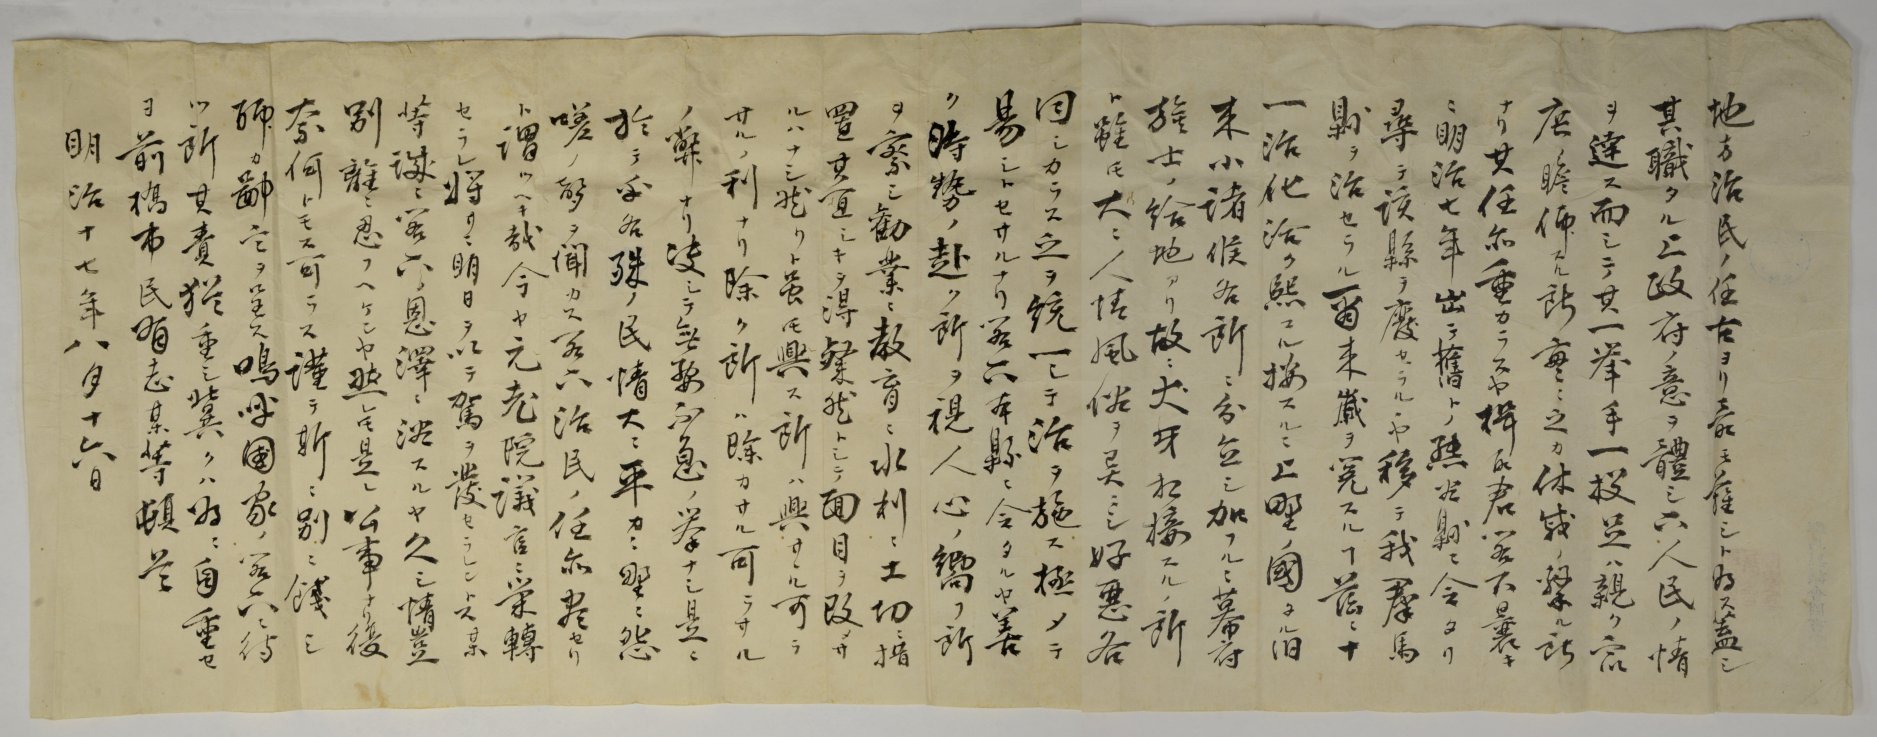 地方治民ノ任古ヨリ意モ難シト為ス蓋シ
其職タル上政府ノ意ヲ體シ下人民ノ情
ヲ達ス而シテ其一挙手一投足ハ親ク衆
庶ノ瞻仰スル所実ニ之カ休戚ノ繋ル所
ナリ其任亦重カラスヤ楫取君閣下曩キ
ニ明治七年出テ舊トノ熊谷縣ニ令タリ
尋テ該縣ヲ廃セラルヽヤ移テ我群馬
縣ヲ治セラル爾来歳ヲ冤スル丁茲ニ十
一治化洽ク熙スル按スルニ上野ノ國タル旧
来小諸侯各所ニ分立シ加フルニ幕府
旗士ノ給地アリ故ニ犬牙相接スルノ所
ト雖モ大ニ人情風俗ヲ異ニシ好悪各
同シカラス之ヲ統一シテ治ヲ施ス極メテ
易シトセサルナリ閣下本縣ニ令タルヤ善
ク時勢ノ赴ク所ヲ視人心ノ嚮フ所
ヲ察シ勧業ニ教育ニ水利ニ土功ニ措
置其宜シキヲ得粲然トシテ面目ヲ改メサ
ルハナシ然リト雖モ興ス所ハ興サヽル可ラ
サルノ利ナリ除ク所ハ除カサル可ラサル
ノ弊ナリ決シテ無要不急ノ挙ナシ是ニ
於テ乎各殊ノ民情大ニ平カニ野ニ怨
嗟ノ声ヲ聞カス閣下治民ノ任亦盡セリ
ト謂ツヘキ哉今ヤ元老院議官ニ栄轉
セラレ将サニ明日ヲ以テ駕ヲ発セラレントス某
等誠ニ閣下ノ恩澤ニ浴スルヤ久シ情豈
別離ニ忍フヘケンヤ然レモ是レ公事ナリ復
奈何トモス可ラス謹テ斯ニ別ニ餞シ
聊カ鄙言ヲ呈ス嗚呼國家ノ閣下ニ待
ツ所其責猶重シ冀クハ為ニ自重セ
ヨ前橋市民有志某等頓首
明治十七年八月十六日